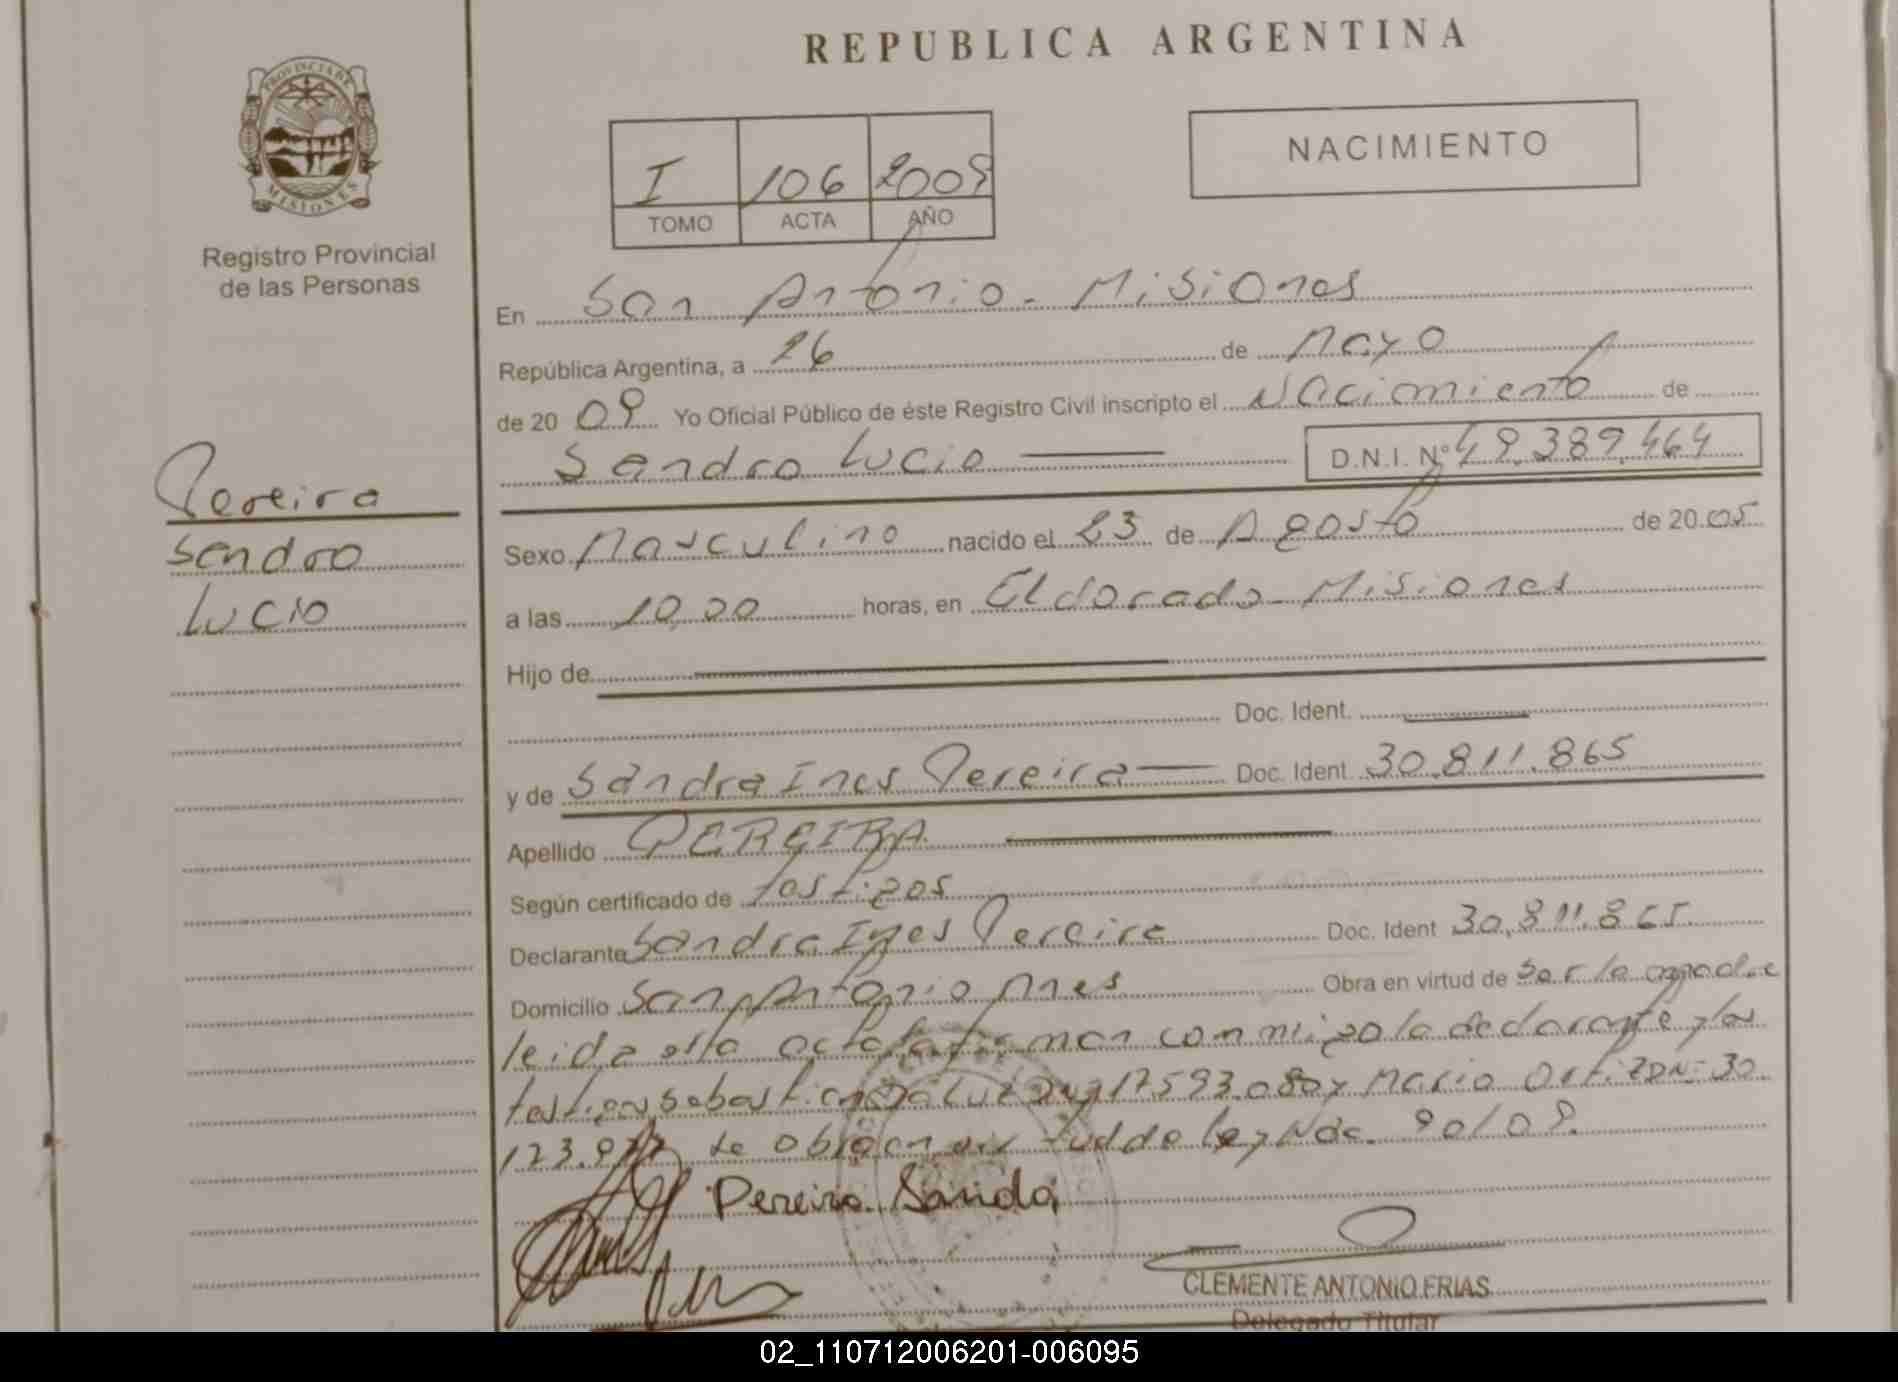 REPUBLICA ARGENTINA
PROVINCIA DE
MISIONES
Registro Provincial
de las Personas
I 106 2009
TOMO ACTA AÑO
NACIMIENTO
En San Antonio - Misiones
República Argentina, a 26 de Mayo
de 20 09 Yo Oficial Público de éste Registro Civil inscripto el Nacimiento de
Sandro Lucio D.N.I. Nº 49.389.464
Pereira
Sandro
Lucio
Sexo Masculino nacido el 23 de Agosto de 20 05
a las 10,00 horas, en Eldorado - Misiones
Hijo de
Doc. Ident.
y de Sandra Ines Pereira Doc. Ident. 30.811.865
Apellido PEREIRA
Según certificado de testigos
Declarante Sandra Ines Pereira Doc. Ident 30.811.865
Domicilio San Antonio Mnes Obra en virtud de ser la madre
leida esta acta la firman conmigo la declarante y los
testigos Sebastian Da Luz DNI 17.593.080 y Mario Ortiz DNI 30
123.977 se obra en virtud de ley 90/09.
Pereira Sandra
CLEMENTE ANTONIO FRIAS
Delegado Titular
02_110712006201-006095